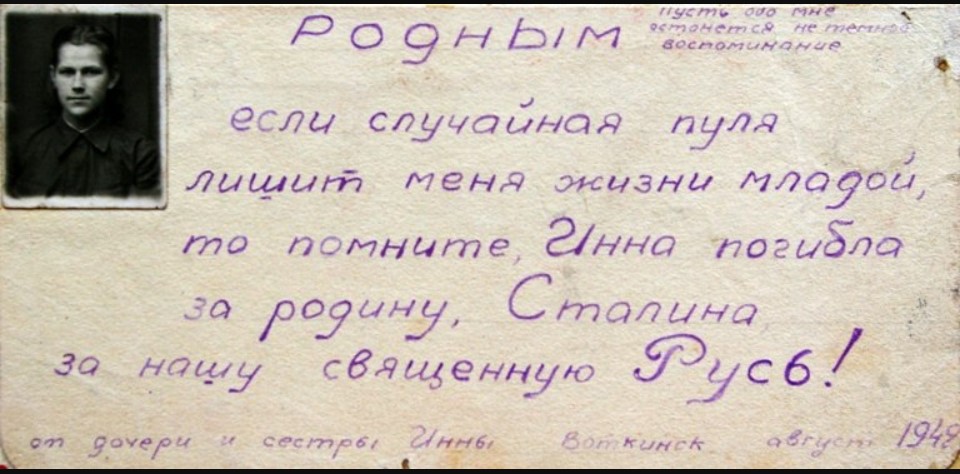 Родным
пусть обо мне
останется не темное
воспоминание
если случайная пуля
лишит меня жизни младой,
то помните, Инна погибла
за родину, Сталина,
за нашу священную Русь!
от дочери и сестры Инны Воткинск август